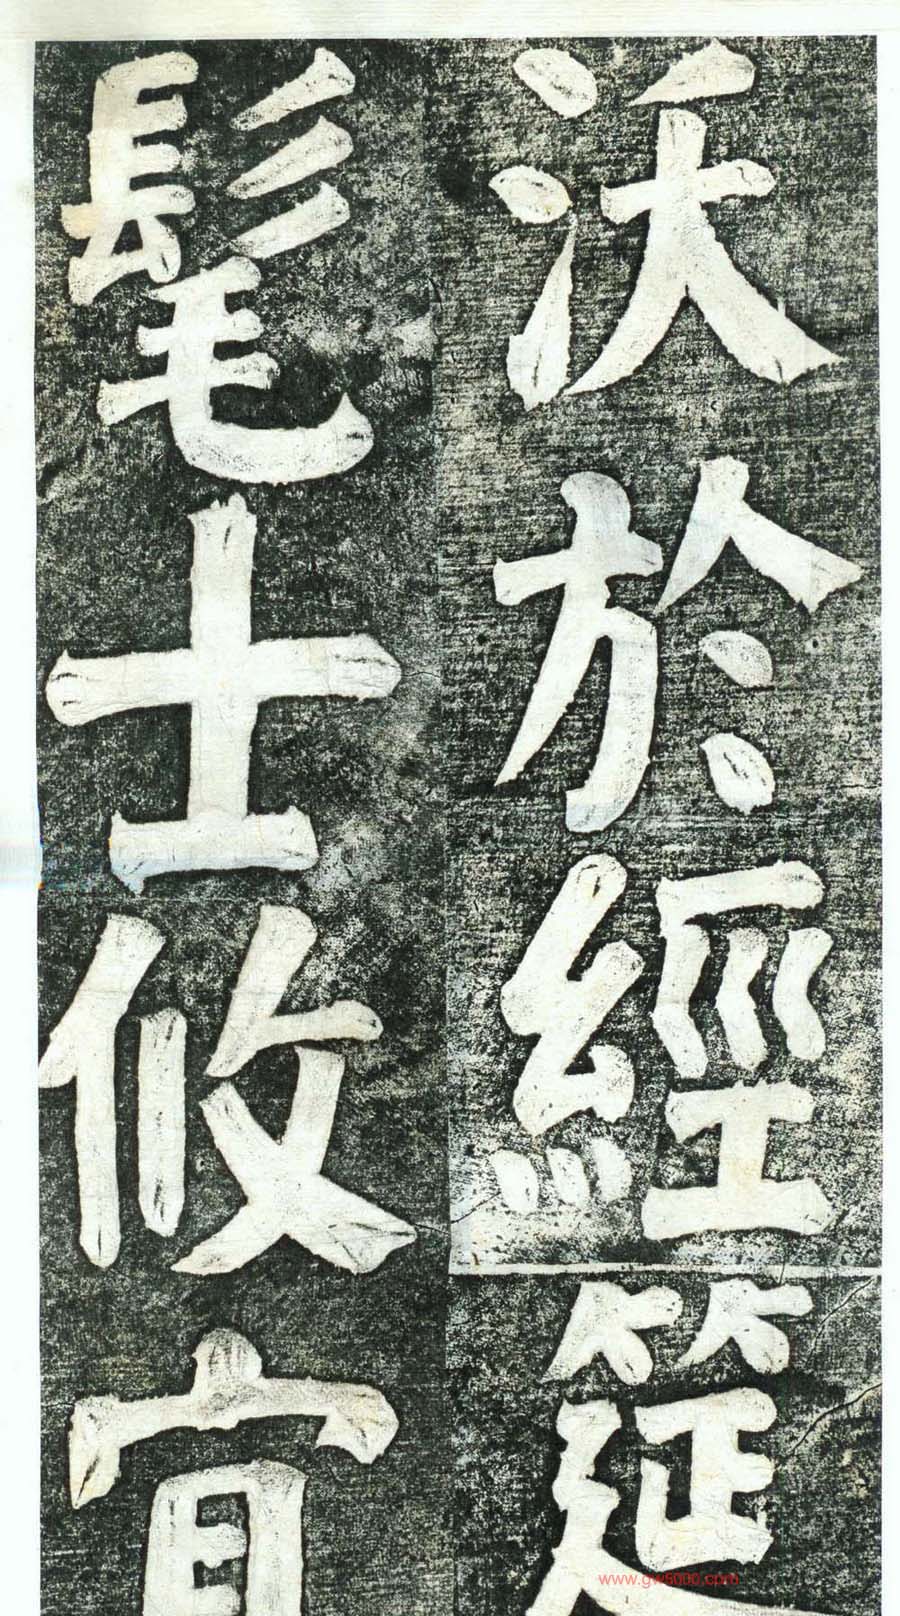 沃於經筵
髦士攸宜
www.gw5000.com